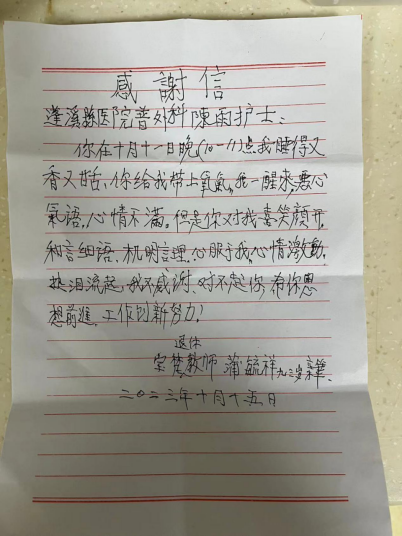 感謝信
蓬溪縣医院普外科陳雨护士：
你在十月十一日晚(10-11)点我睡得又
香又甜，你给我带上氧氣。我一醒來悪心
氣语，心情不滿，但是你对我喜笑顏开，
和言细语、机明言理，心服于我，心情激動，
热泪流起，我不感谢，对不起你，希你思
想前進、工作创新努力！
退休
宝梵教师 蒲毓祥九三岁亲筆
二〇二三年十月十五日